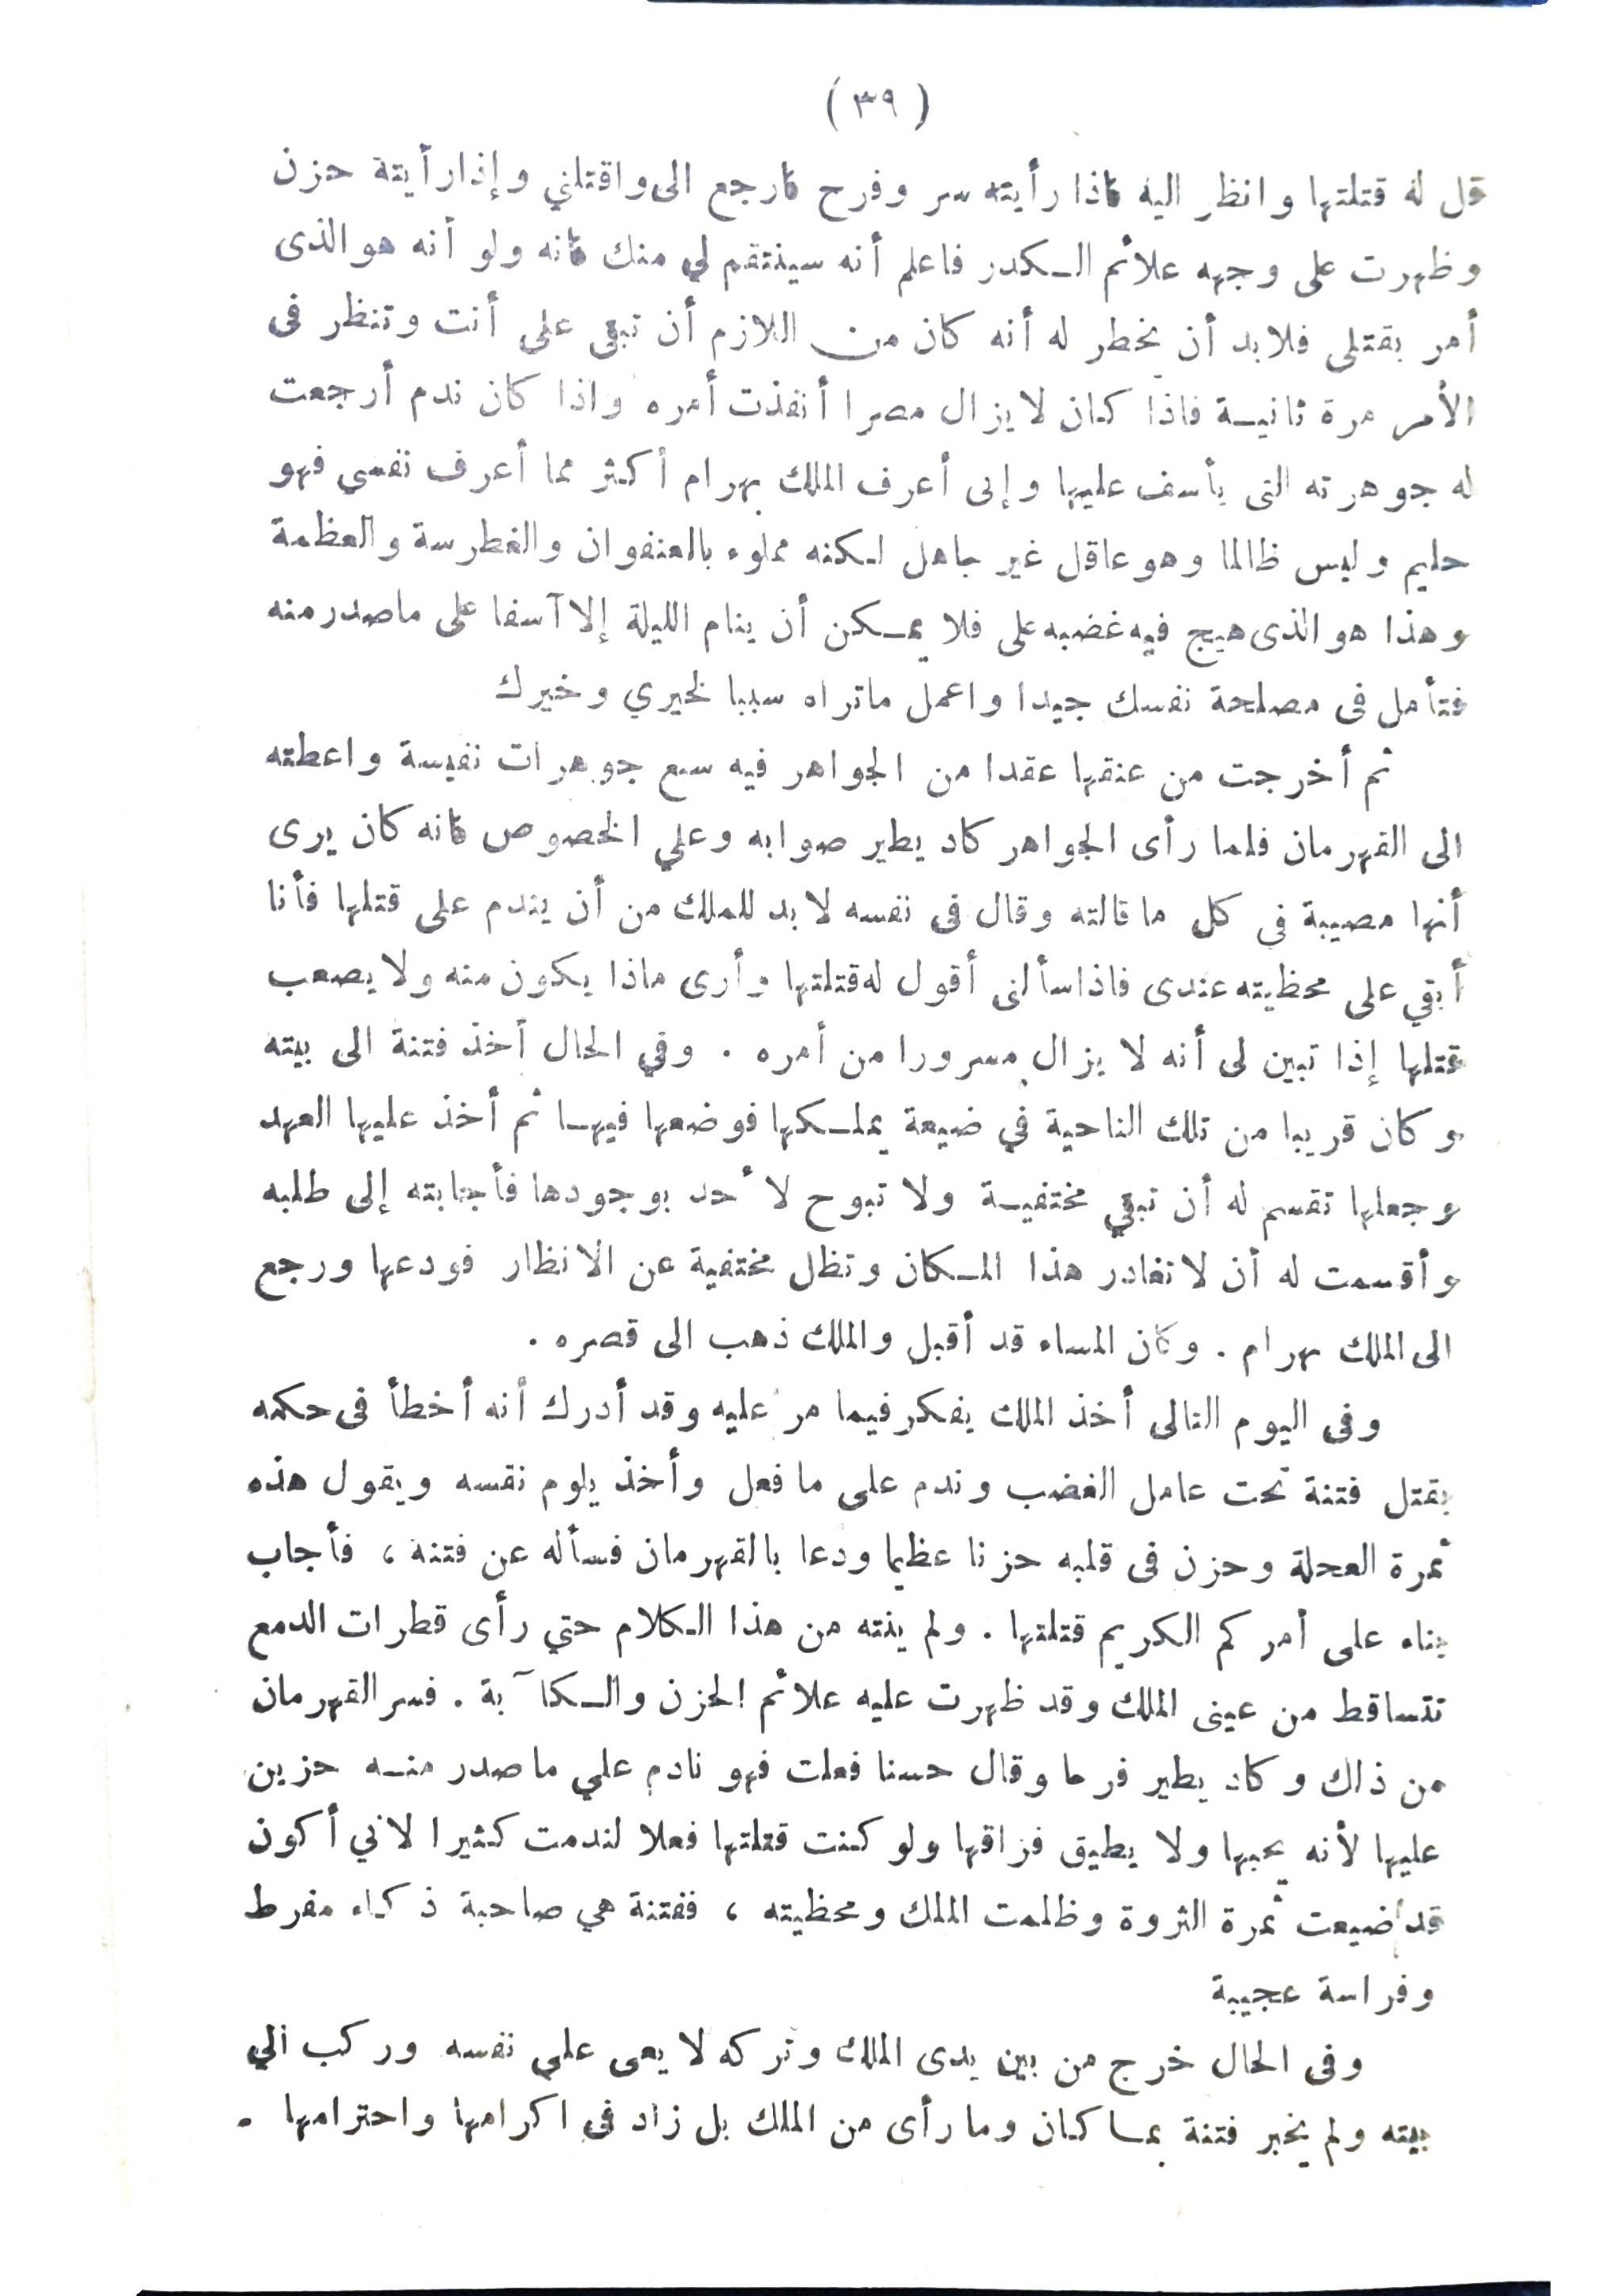 (٣٩)
قل له قتلتها وانظر اليه فاذا رأيته سر وفرح فارجع الى واقتلني وإذا رأيتة حزن
وظهرت على وجهه علائم الكدر فاعلم أنه سينتقم لي منك فانه ولو أنه هو الذى
أمر بقتلى فلا بد أن يخطر له أنه كان من اللازم أن تبقى على أنت وتنظر فى
الأمر مرة ثانية فاذا كان لا يزال مصرا أنفذت أمره واذا كان ندم أرجعت
له جوهرته التى يأسف عليها وإنى أعرف الملك بهرام أكثر مما أعرف نفسى فهو
حليم وليس ظالما وهو عاقل غير جاهل لكنه مملوء بالعنفوان والغطرسة والعظمة
وهذا هو الذى هيج فيه غضبه على فلا يمكن أن ينام الليلة إلا آسفا على ما صدر منه
فتأمل فى مصلحة نفسك جيدا واعمل ماتراه سببا لخيري وخيرك
ثم أخرجت من عنقها عقدا من الجواهر فيه سبع جوهرات نفيسة واعطته
الى القهرمان فلما رأى الجواهر كاد يطير صوابه وعلي الخصوص فانه كان يرى
أنها مصيبة في كل ما قالته وقال فى نفسه لا بد للملك من أن يندم على قتلها فأنا
أبقي على محظيته عندى فاذا سألنى أقول له قتلتها وأرى ماذا يكون منه ولا يصعب
قتلها إذا تبين لى أنه لا يزال مسرورا من أمره . وفي الحال أخذ فتنة الى بيته
وكان قريبا من تلك الناحية في ضيعة يملكها فوضعها فيها ثم أخذ عليها العهد
وجعلها تقسم له أن تبقي مختفية ولا تبوح لأحد بوجودها فأجابته إلى طلبه
وأقسمت له أن لا تغادر هذا المكان وتظل مختفية عن الانظار فودعها ورجع
الى الملك بهرام . وكان المساء قد أقبل والملك ذهب الى قصره .
وفى اليوم التالى أخذ الملك يفكر فيما مر عليه وقد أدرك أنه أخطأ فى حكمه
بقتل فتنة تحت عامل الغضب وندم على ما فعل وأخذ يلوم نفسه ويقول هذه
ثمرة العجلة وحزن فى قلبه حزنا عظيما ودعا بالقهرمان فسأله عن فتنة ، فأجاب
بناء على أمركم الكريم قتلتها . ولم ينته من هذا الكلام حتي رأى قطرات الدمع
تتساقط من عينى الملك وقد ظهرت عليه علائم الحزن والكآبة . فسر القهرمان
من ذلك وكاد يطير فرحا وقال حسنا فعلت فهو نادم علي ما صدر منه حزين
عليها لأنه يحبها ولا يطيق فراقها ولو كنت قتلتها فعلا لندمت كثيرا لاني أكون
قد أضيعت ثمرة الثروة وظلمت الملك ومحظيته ، ففتنة هي صاحبة ذكاء مفرط
وفراسة عجيبة
وفى الحال خرج من بين يدى الملك وتركه لا يعى على نفسه وركب الي
بيته ولم يخبر فتنة بما كان وما رأى من الملك بل زاد في اكرامها واحترامها .